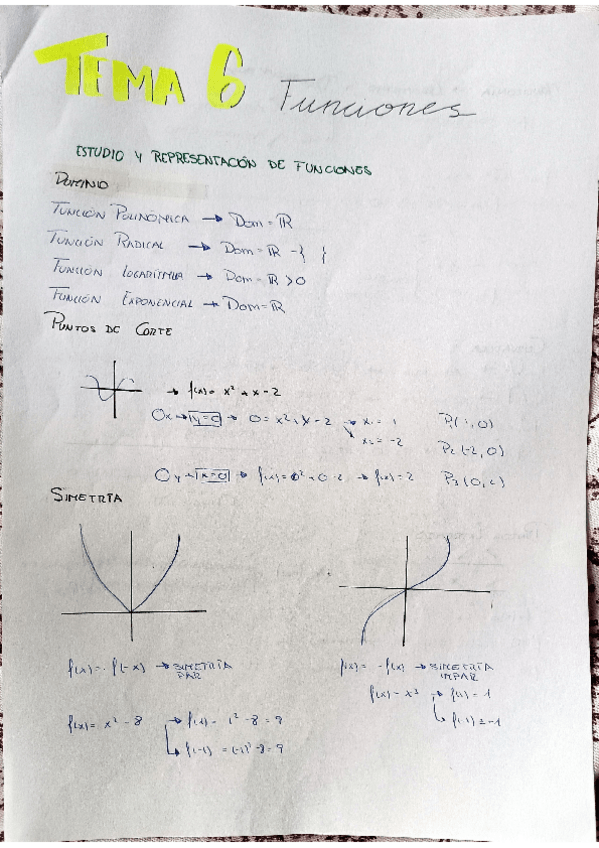 TEMA 6 Funciones
ESTUDIO Y REPRESENTACIÓN DE FUNCIONES
DOMINIO
FUNCIÓN POLINÓMICA → Dom = ℝ
FUNCIÓN RADICAL → Dom = ℝ - { }
FUNCIÓN LOGARÍTMICA → Dom = ℝ > 0
FUNCIÓN EXPONENCIAL → Dom = ℝ
PUNTOS DE CORTE
→ f(x) = x² + x - 2
Ox → y=0 → 0 = x² + x - 2 → x₁ = 1 P₁(1, 0)
x₂ = -2 P₂(-2, 0)
Oy → x=0 → f(x) = 0² + 0 - 2 → f(x) = 2 P₃(0, 2)
SIMETRÍA
f(x) = f(-x) → SIMETRÍA PAR
f(x) = -f(x) → SIMETRÍA IMPAR
f(x) = x³ → f(1) = 1
f(-1) = -1
f(x) = x² - 8 → f(1) = 1² - 8 = 9
f(-1) = (-1)² - 8 = 9